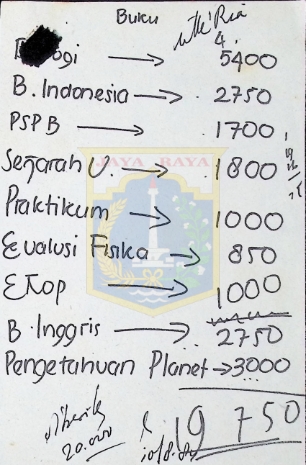 Buku
utk' Ria
ogi → 5400
B. Indonesia → 2750
PSPB → 1700
Sejarah U. → 1800
JAYA RAYA
Praktikum → 1000
Evalusi Fisika → 850
EKop → 1000
B. Inggris → 2750
Pengetahuan Planet → 3000
19 750
20.000